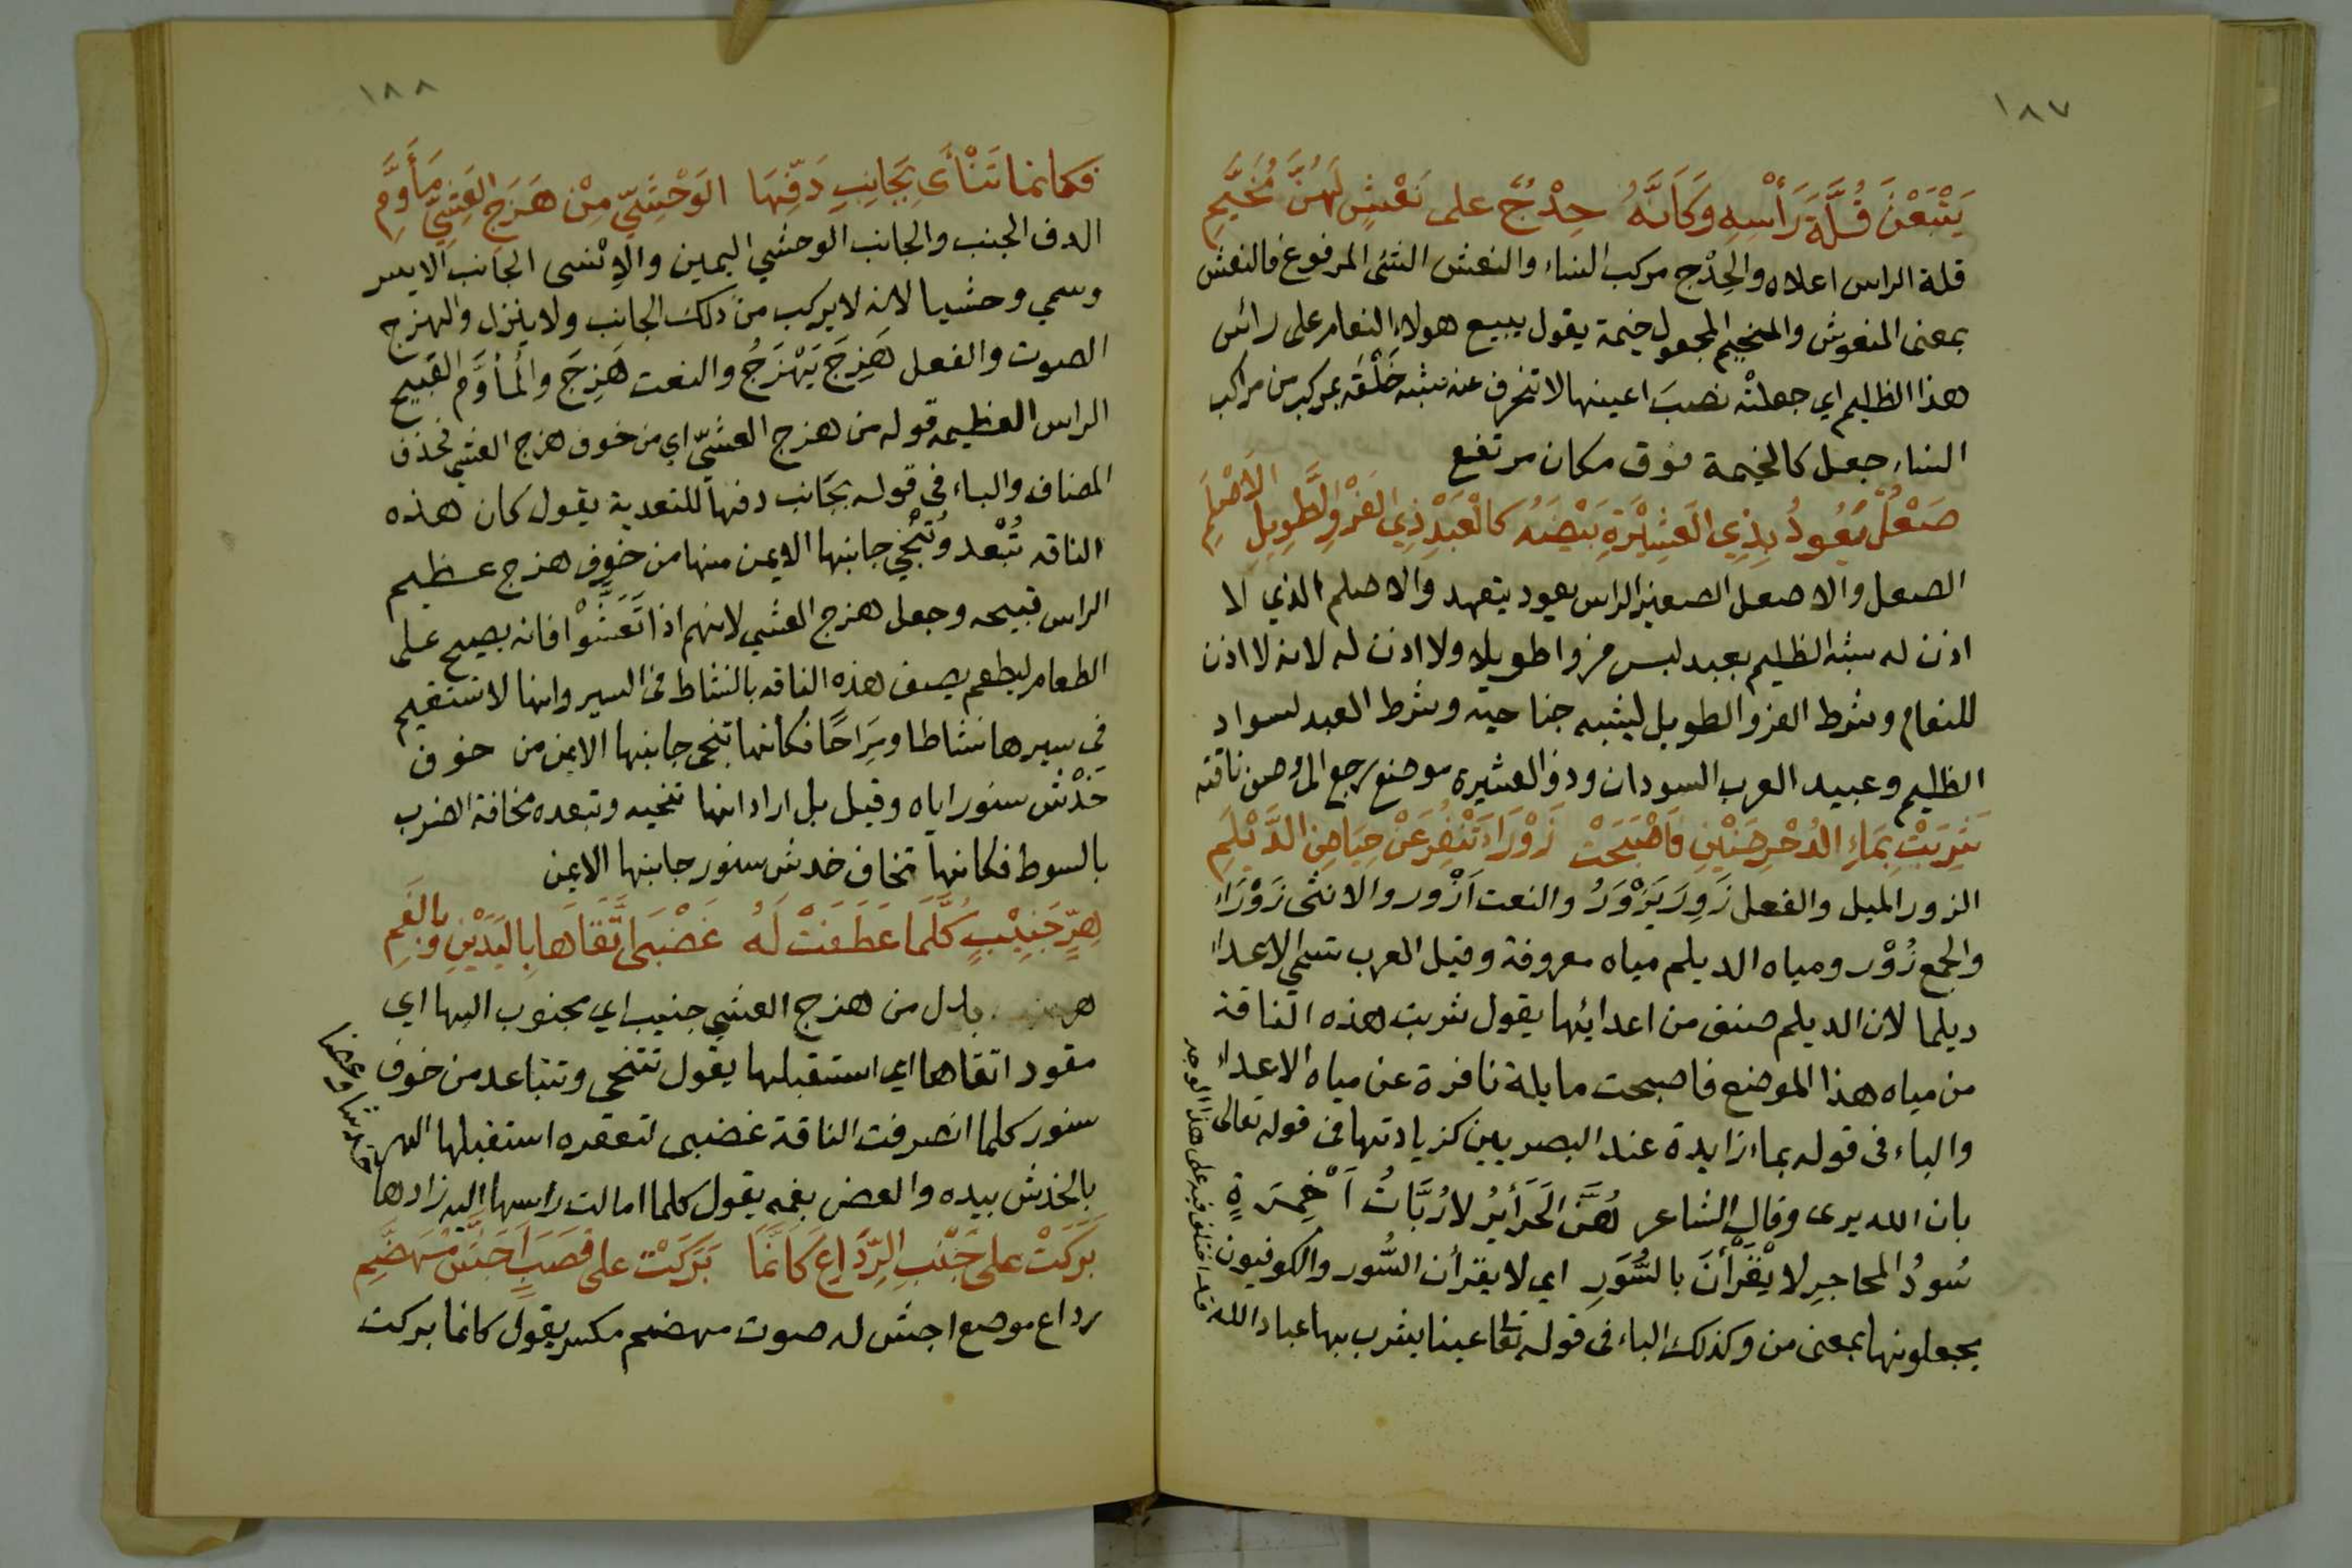 ١٨٧
يَتْبَعْنَ قُلَّةَ رَأْسِهِ وَكَاَنَّهُ حِدْجٌ على نَعْشٍ لَهُنَّ مُخَيَّمِ
قلة الراس اعلاه والحِدْج مركب النساء والنعش الشئ المرفوع فالنعش
بمعنى المنعوش والمخيم المجعول خيمة يقول يبيع هولاء النعام على رائس
هذا الظليم اي جعلتْه نصبَ اعينها لا تنحرف عنه شبه خَلْقَه بمركب من مراكب
النساء جعل كالخيمة فوق مكان مرتفع
صَعْلٌ يَعُودُ بِذِي العَشِيْرَةِ بَيْضَهُ كالْعَبْدِ ذِي الفَرْوِ الطَّوِيلِ الاَصْلَمِ
الصعل والاصعل الصغير الراس يعود يتعهد والاصلم الذي لا
اذن له شبه الظليم بعبد لبس فروا طويلا ولا اذن له لانه لا اذن
للنعام وشرط الفرو الطويل ليشبه جناحيه وشرط العبد لسواد
الظليم وعبيد العرب السودان وذو العشيرة موضع رجع الى وصف ناقته
شَرِبَتْ بِمَاءِ الدُّحْرُضَيْنِ فَاَصْبَحَتْ زَوْرَاءَ تَنْفِرُ عَنْ حِيَاضِ الدَّيْلَمِ
الزور الميل والفعل زَوِرَ يَزْوَرُ والنعت اَزْور والانثى زَوْرَاء
والجمع زُوْر ومياه الديلم مياه معروفة وقيل العرب تسمي الاعداء
ديلما لان الديلم صنف من اعدائها يقول شربت هذه الناقة
من مياه هذا الموضع فاصبحت مايلة نافرة عن مياه الاعداء
والباء فى قوله بماء زايدة عند البصريين كزيادتها فى قوله تعالى
بان الله يرى وقال الشاعر هُنَّ الحَرَائِرُ لا رُبَّاتُ اَخْمِرَةٍ
سُودُ المحاجرِ لا يَقْرَأْنَ بالسُّوَرِ اي لا يقرأن السُّور والكوفيون
يجعلونها بمعنى من وكذلك الباء فى قوله تعا عينا يشرب بها عباد الله
قد اختلف فيه على هذا الوجه
١٨٨
فكانما تَنْأَى بِجَانِبِ دَفِّهَا الوَحْشِيِّ مِنْ هَزَجِ العَشِيِّ مُأَوَّمِ
الدف الجنب والجانب الوحشي اليمين والاِنْسى الجانب الايسر
وسمي وحشيا لانه لا يركب من ذلك الجانب ولا ينزل والهزج
الصوت والفعل هَزِجَ يَهْزَجُ والنعت هَزِجَ والمُأوَّم القبيح
الراس العظيمه قوله من هزج العشيّ اي من خوف هزج العشي فحذف
المضاف والباء فى قوله بجَانب دفها للتعدية يقول كان هذه
الناقه تُبْعد وتُنْجّي جانبها الايمن منها من خوف هزج عظيم
الراس قبيحه وجعل هزج العشي لانهم اذا تَعَشَّوْا فانه يصيح على
الطعام ليطعم يصف هذه الناقه بالنشاط فى السير وانها لا تستقيم
فى سيرها نشاطا ومِرَاحًا فكانها تنحى جانبها الايمن من خوف
خَدْش سنور اياه وقيل بل اراد انها تنحيه وتبعده مخافة الضرب
بالسوط فكانها تخاف خدش سنور جانبها الايمن
هِرٍّ جَنِيْبٍ كُلَّمَا عَطَفَتْ لَهُ غَضْبَى اتَّقَاهَا بِاليَدَيْنِ وَبِالفَمِ
هر بدل من هزج العشي جنيب اي مجنوب اليها اي
مقود اتقاها اي استقبلها يقول تتنحى وتتباعد من خوف
سنور كلما انصرفت الناقة غضبى لتعقره استقبلها الهر
بالخدش بيده والعض بفمه يقول كلما امالت راسها اليه زادها
خدشا وعضا
بَرَكَتْ على جَنْبِ الرِّدَاعِ كَانَّمَا بَرَكَتْ على قَصَبٍ اَجَشَّ مُهَضَّمِ
رداع موضع اجش له صوت مهضم مكسر يقول كانما بركت